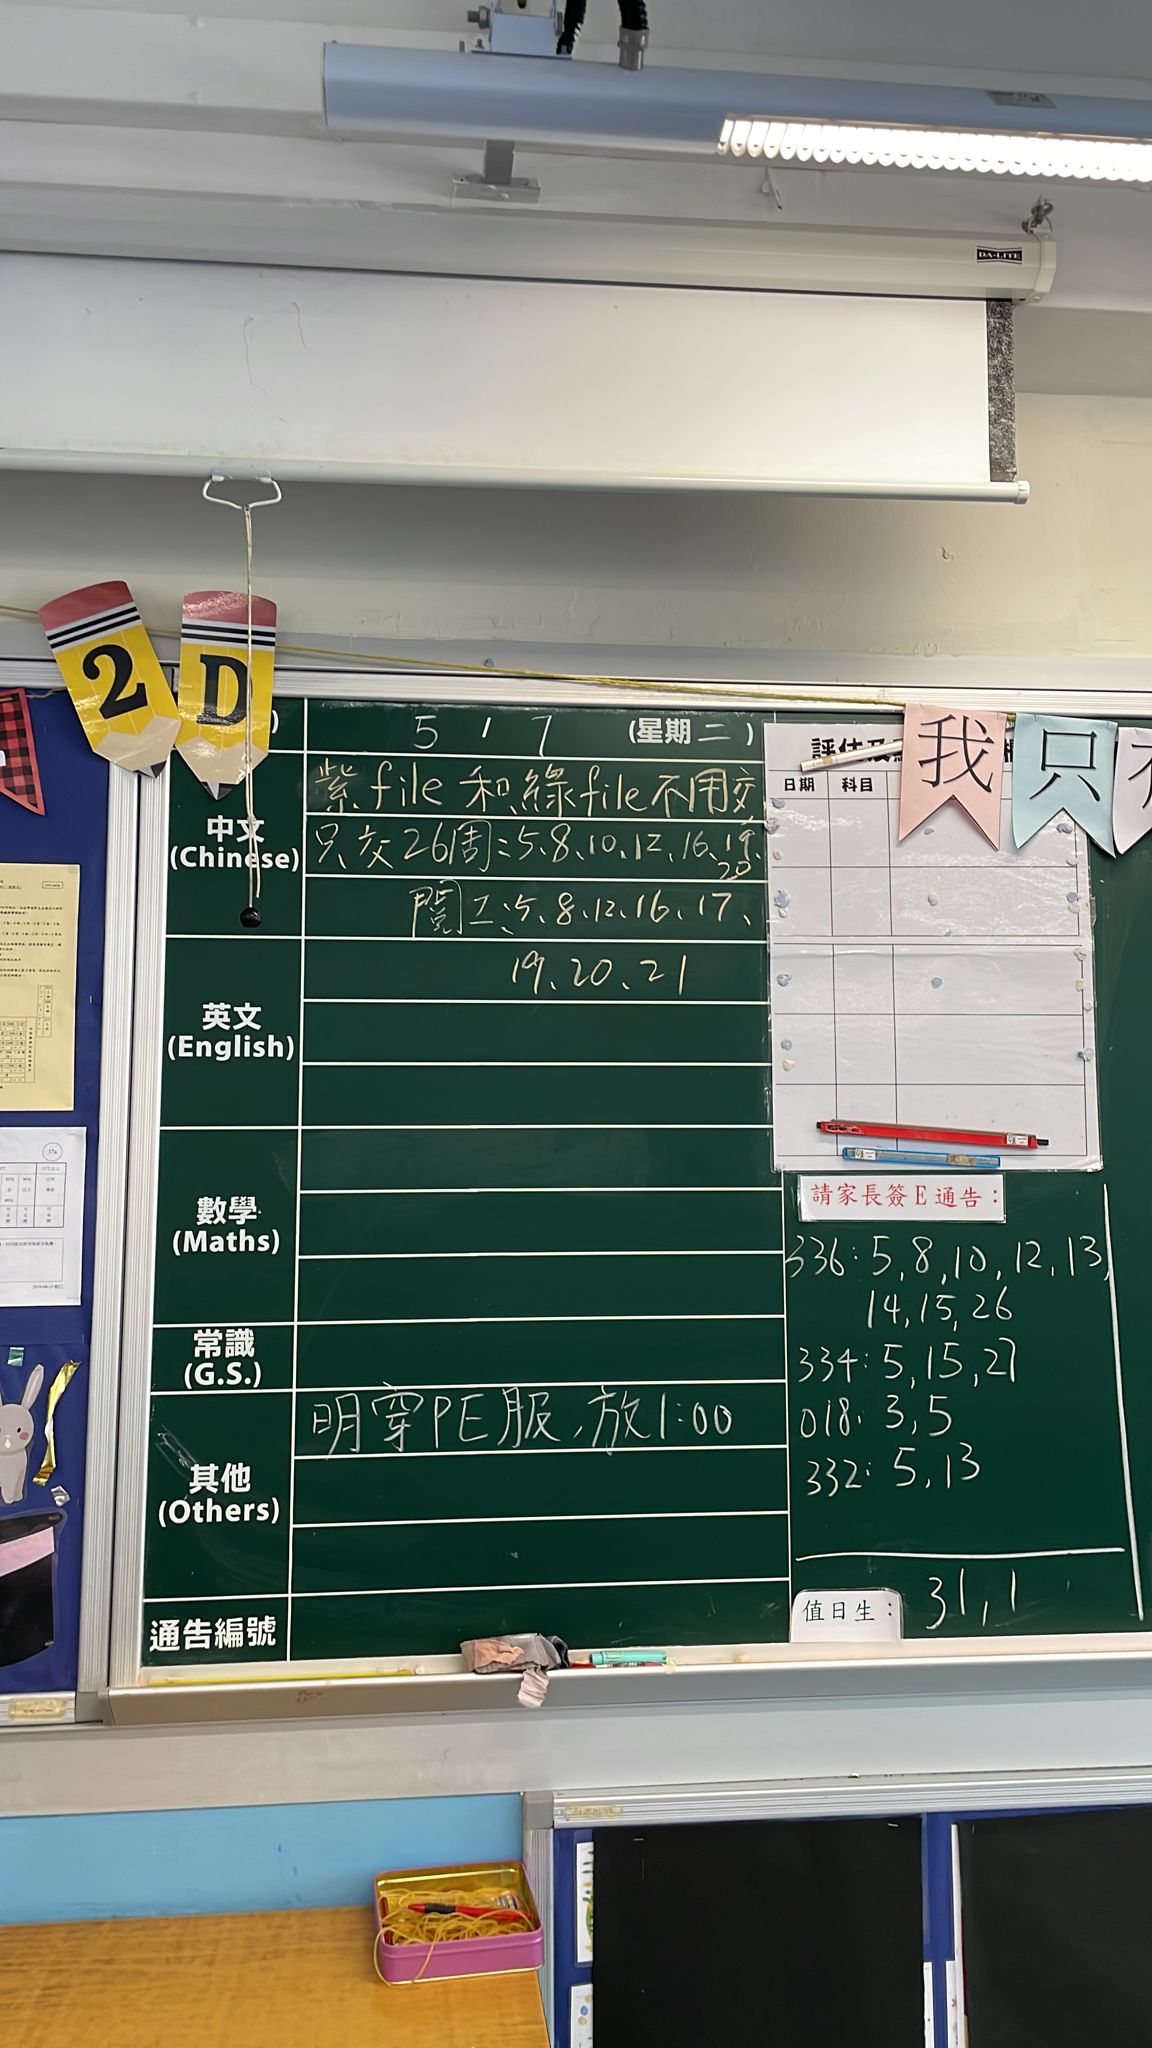 DA-LITE
2 D
5 / 7 (星期二)
中文
(Chinese)
紫file和綠file不用交
只交26周:5、8、10、12、16、19、
20
閱工:5、8、12、16、17、
19、20、21
英文
(English)
數學
(Maths)
常識
(G.S.)
其他
(Others)
明穿PE服,放1:00
通告編號
我 只
日期 科目
請家長簽E通告:
336: 5, 8, 10, 12, 13,
14, 15, 26
334: 5, 15, 27
018: 3, 5
332: 5, 13
值日生: 31, 1